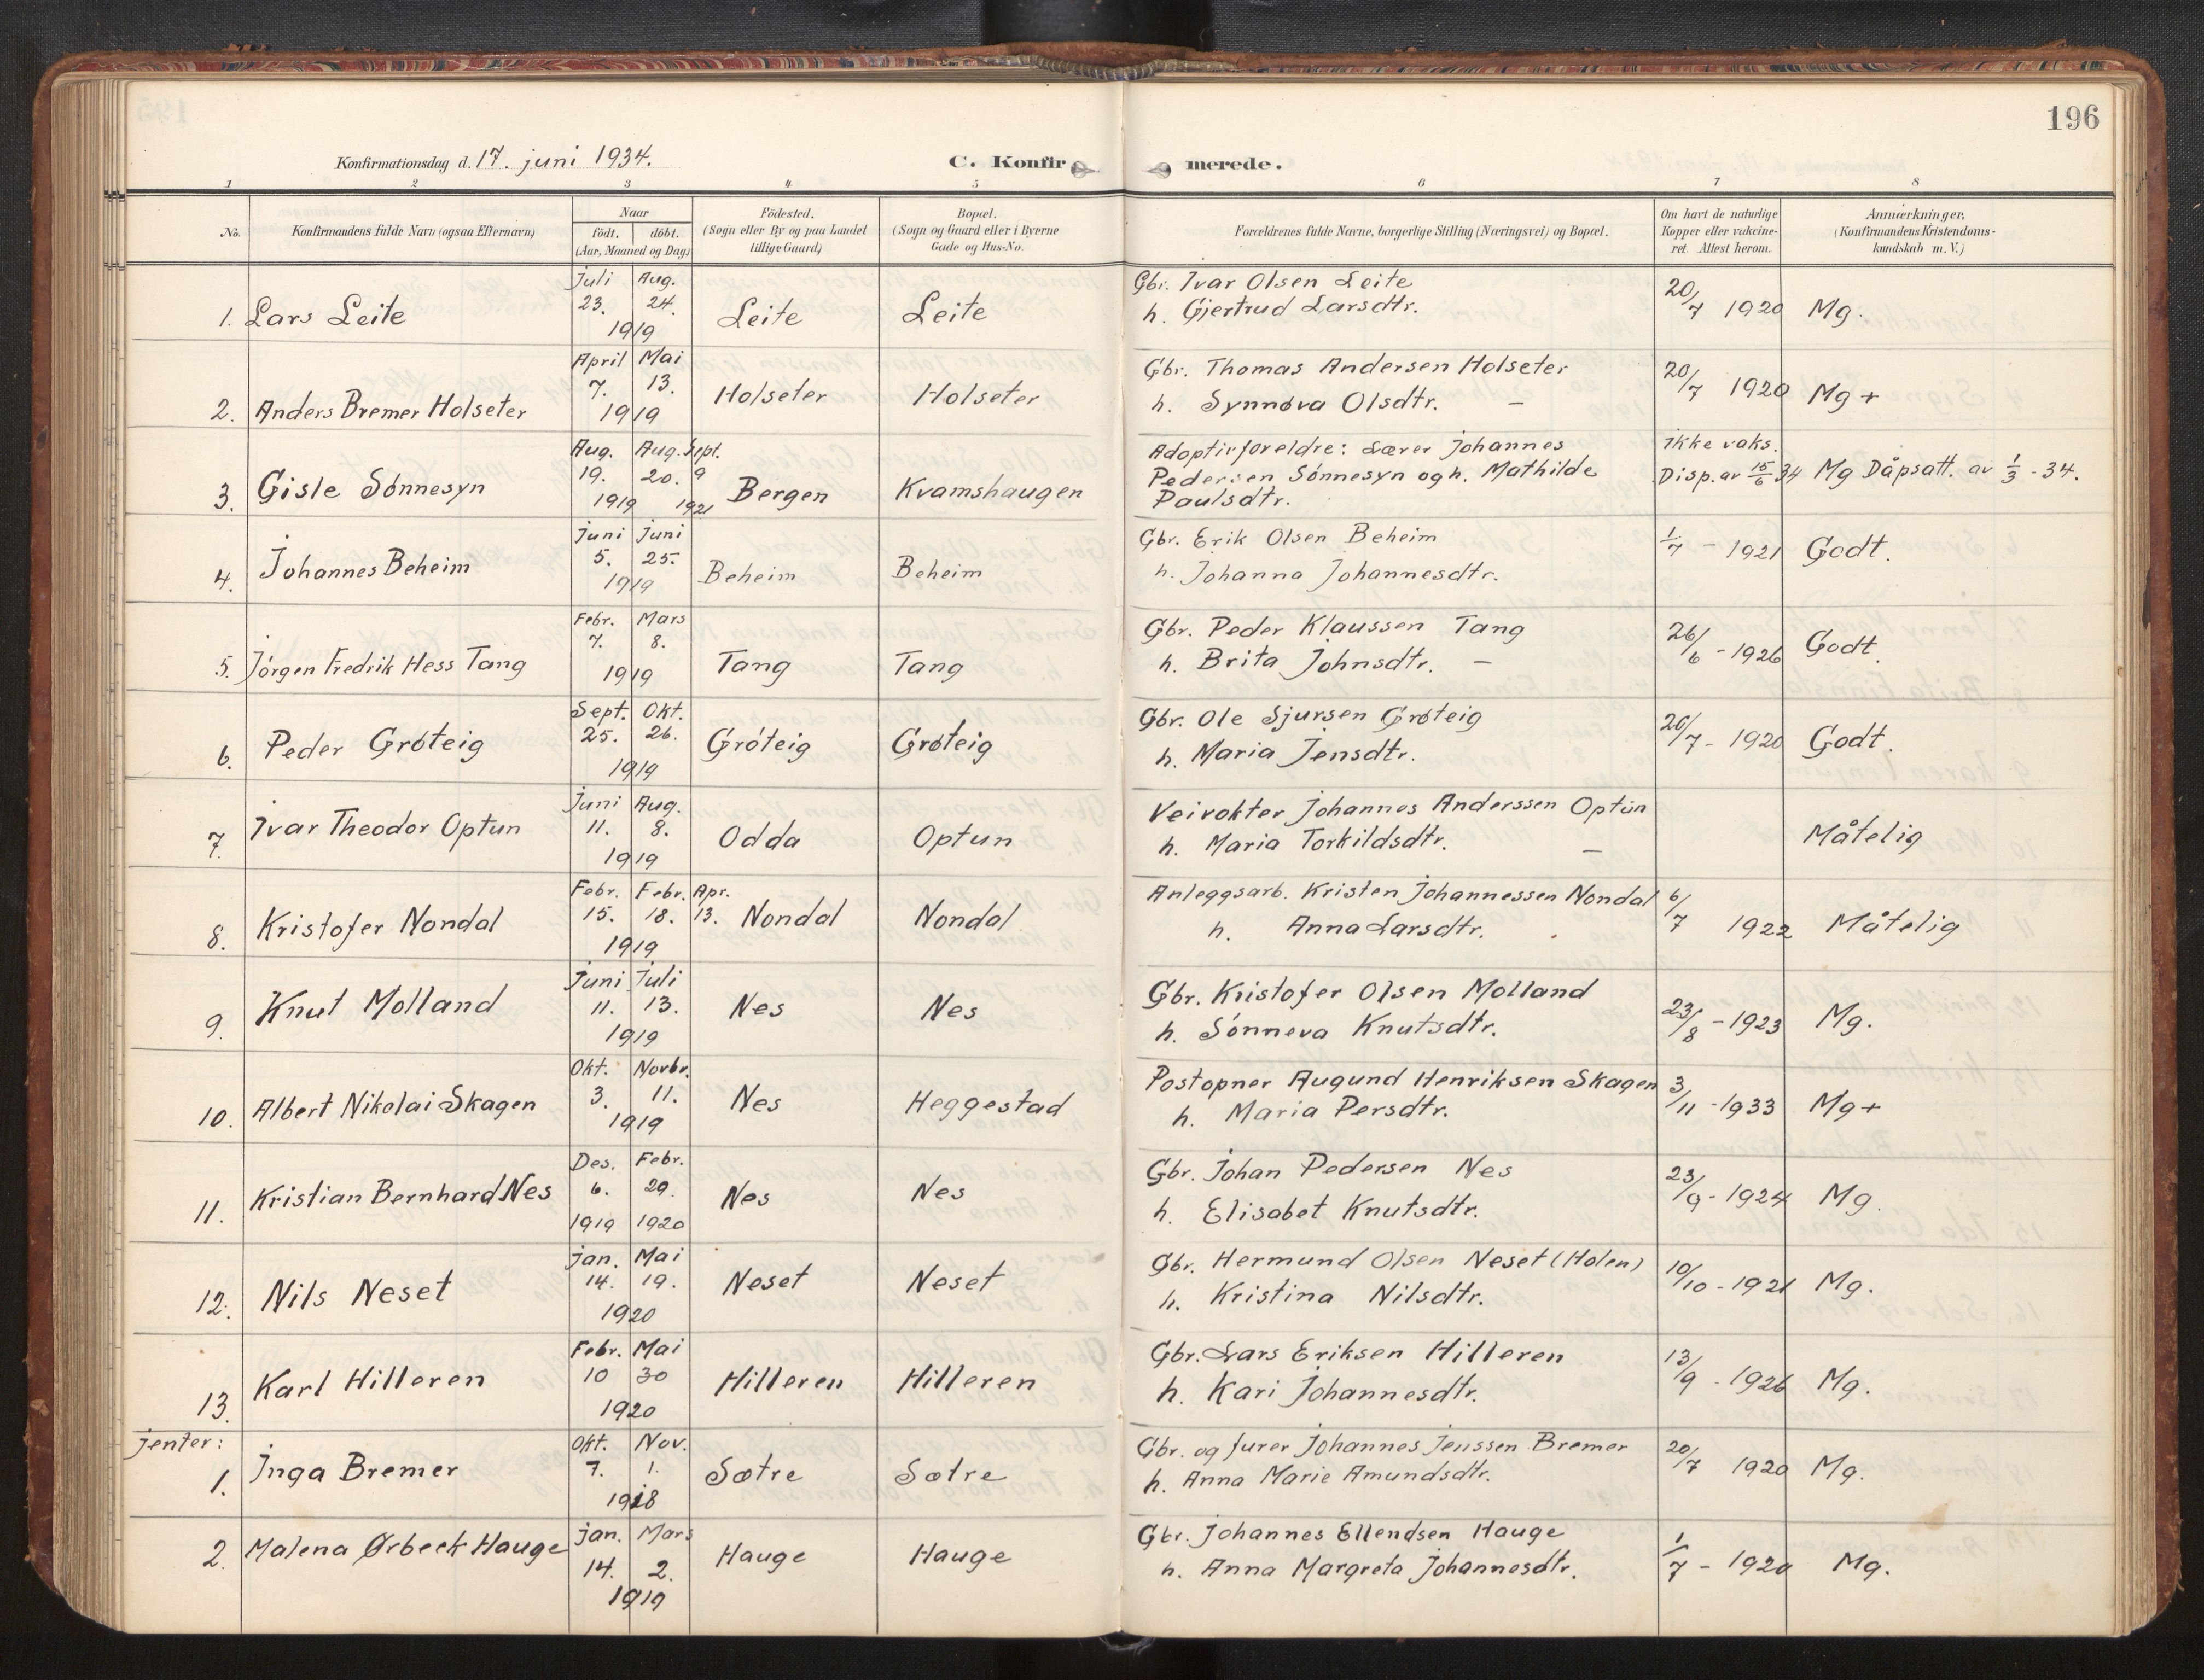 196
Konfirmationsdag d. 17. juni 1934. C. Konfir merede.
1 2 3 4 5 6 7 8
No. Konfirmandens fulde Navn (ogsaa Efternavn) Naar födt. döbt. (Aar, Maaned og Dag) Födested. (Sogn eller By og paa Landet tillige Gaard) Bopæl. (Sogn og Gaard eller i Byerne Gade og Hus-No. Forældrenes fulde Navne, borgerlige Stilling (Næringsvei) og Bopæl. Om havt de naturlige Kopper eller vakcineret. Attest herom. Anmærkninger. (Konfirmandens Kristendomskundskab m. V.)
Juli Aug. Gbr. Ivar Olsen Leite
1. Lars Leite 23. 24. Leite Leite h. Gjertrud Larsdtr. 20/7 1920 Mg.
1919
April Mai Gbr. Thomas Andersen Holseter
2. Anders Bremer Holseter 7. 13. Holseter Holseter h. Synnøva Olsdtr. — 20/7 1920 Mg +
1919
Aug. Aug. Sept. Adoptivforeldre: Lærer Johannes ikke vaks.
3. Gisle Sönnesyn 19. 20. 9 Bergen Kvamshaugen Pedersen Sönnesyn og h. Mathilde Disp. av 15/6 34 Mg Dåpsatt. av 1/3 - 34.
1919 1921 Paulsdtr.
Juni Juni Gbr. Erik Olsen Beheim
4. Johannes Beheim 5. 25. Beheim Beheim h. Johanna Johannesdtr. 1/7 - 1921 Godt.
1919
Febr. Mars Gbr. Peder Klaussen Tang
5. Jörgen Fredrik Hess Tang 7. 8. Tang Tang h. Brita Johnsdtr. — 26/6 - 1926 Godt.
1919
Sept. Okt. Gbr. Ole Sjursen Grøteig
6. Peder Gröteig 25. 26. Gröteig Grøteig h. Maria Jensdtr. 20/7 - 1920 Godt.
1919
Juni Aug. Veivokter Johannes Anderssen Optun
7. Ivar Theodor Optun 11. 8. Odda Optun h. Maria Torkildsdtr. — Måtelig
1919
Febr. Febr. Apr. Anleggsarb. Kristen Johannessen Nondal
8. Kristofer Nondal 15. 18. 13. Nondal Nondal h. Anna Larsdtr. 6/7 1922 Måtelig
1919
Juni Juli Gbr. Kristofer Olsen Molland
9. Knut Molland 11. 13. Nes Nes h. Sönneva Knutsdtr. 23/8 - 1923 Mg.
1919
Okt. Novbr. Postopner Augund Henriksen Skagen
10. Albert Nikolai Skagen 3. 11. Nes Heggestad h. Maria Persdtr. 3/11 - 1933 Mg +
1919
Des. Febr. Gbr. Johan Pedersen Nes
11. Kristian Bernhard Nes 6. 29. Nes Nes h. Elisabet Knutsdtr. 23/9 - 1924 Mg.
1919 1920
jan. Mai Gbr. Hermund Olsen Neset (Holen)
12. Nils Neset 14. 19. Neset Neset h. Kristina Nilsdtr. 10/10 - 1921 Mg.
1920
Febr. Mai Gbr. Lars Eriksen Hilleren
13. Karl Hilleren 10 30 Hilleren Hilleren h. Kari Johannesdtr. 13/9 - 1926 Mg.
1920
jenter: Okt. Nov. Gbr. og furer Johannes Jenssen Bremer
1. Inga Bremer 7. 1. Sætre Sætre h. Anna Marie Amundsdtr. 20/7 1920 Mg.
1918
jan. Mars Gbr. Johannes Ellendsen Hauge
2. Malena Ørbeck Hauge 14. 2. Hauge Hauge h. Anna Margreta Johannesdtr. 1/7 - 1920 Mg.
1919